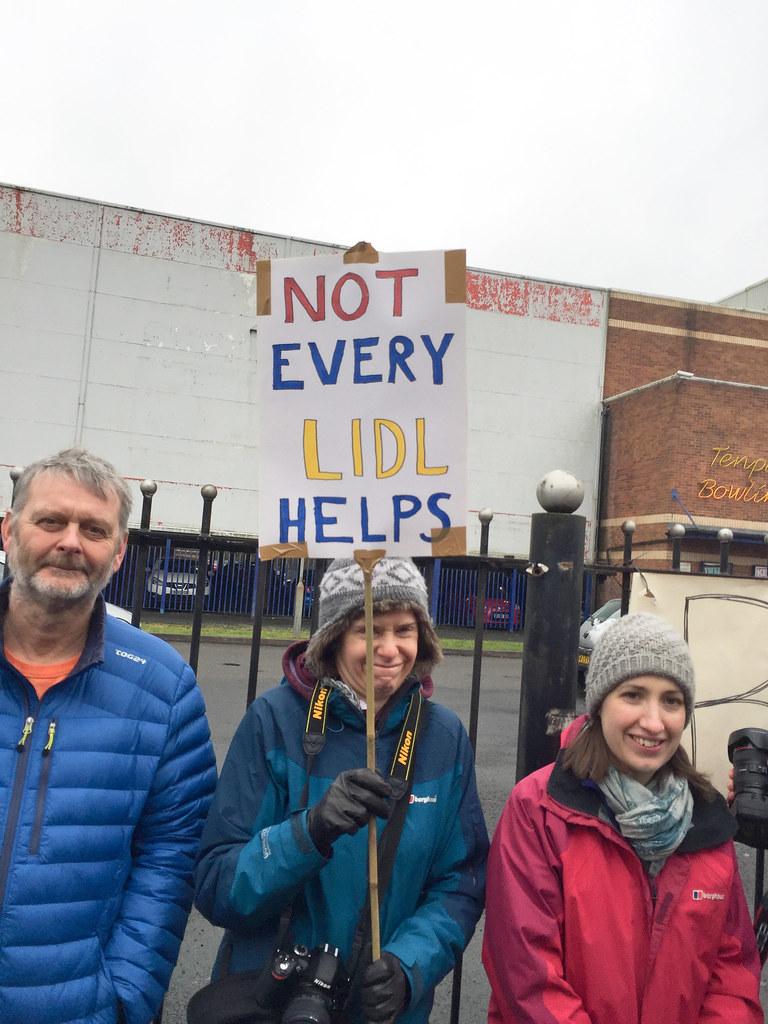 NOT
EVERY
LIDL
HELPS
Bowlin
TOG24
Nikon
Nikon
berghaus
berghaus
Nikon